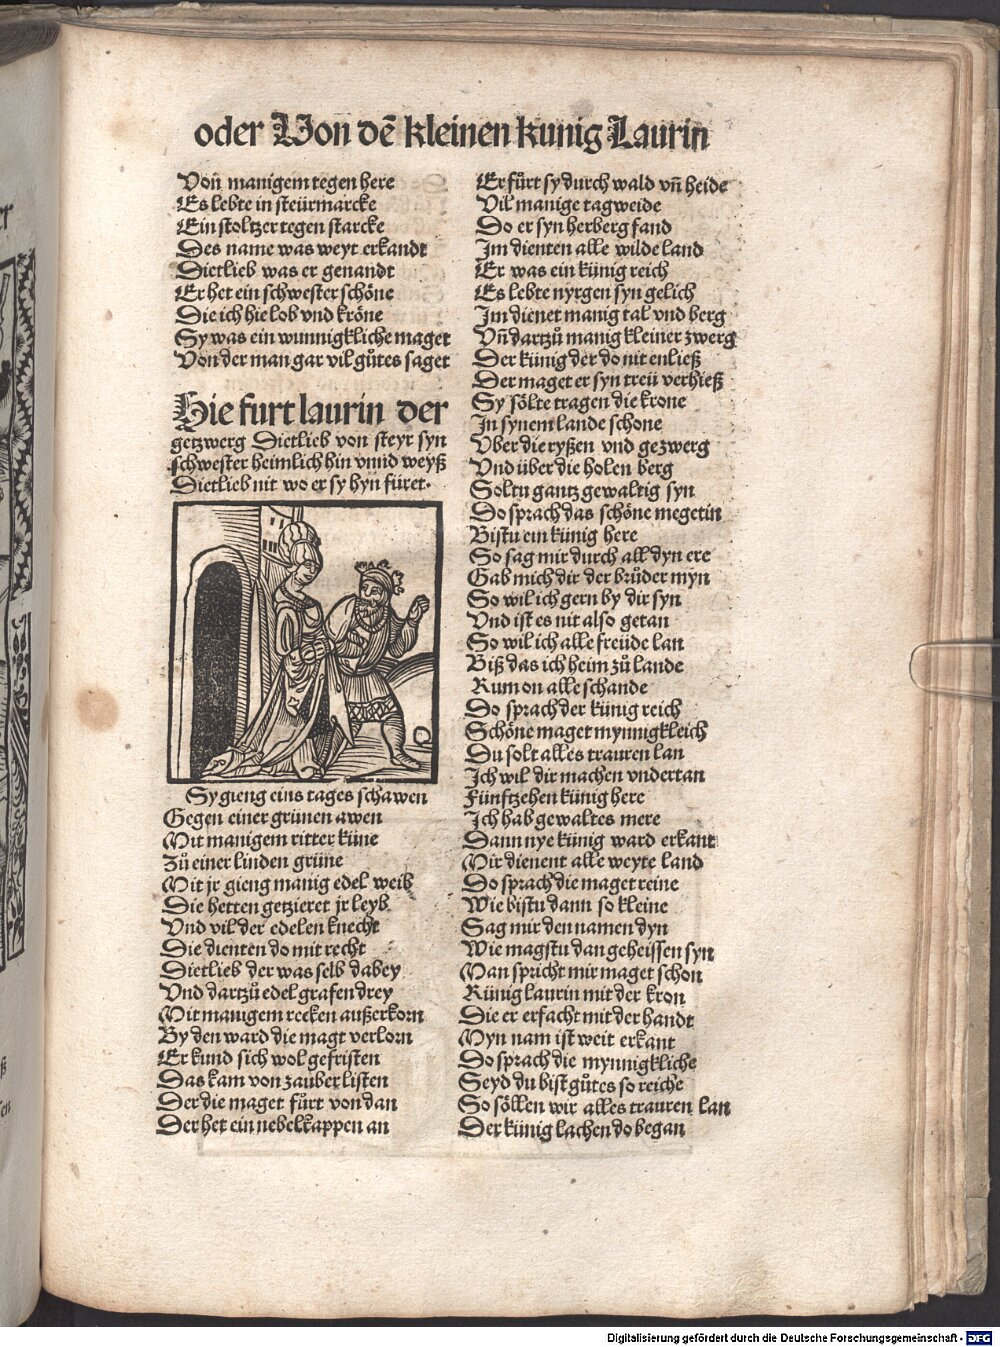 oder Von dē kleinen kunig Laurin
Von̄ manigem tegen here
Es lebte in steürmarcke
Ein stoltzer tegen starcke
Des name was weyt erkandt
Dietlieb was er genandt
Er het ein schwester schöne
Die ich hie lob vnd kröne
Sy was ein wunnigkliche maget
Von der man gar vil gůtes saget
Hie furt laurin der
getzwerg Dietlieb von steyr syn
schwester heimlich hin vnnd weyß
Dietlieb nit wo er sy hyn füret.
Sy gieng eins tages schawen
Gegen einer grünen awen
Mit manigem ritter küne
Zů einer linden grüne
Mit jr gieng manig edel weib
Die hetten getzieret jr leyb
Vnd vil der edelen knecht
Die dienten do mit recht
Dietlieb der was selb dabey
Vnd dartzů edel grafen drey
Mit manigem recken außerkorn
By den ward die magt verlorn
Er kund sich wol gefristen
Das kam von zauber listen
Der die maget fůrt von dan
Der het ein nebelkappen an
Er fůrt sy durch wald vn̄ heide
Vil manige tagweide
Do er syn herberg fand
Im dienten alle wilde land
Er was ein künig reich
Es lebte nyrgen syn gelich
Im dienet manig tal vnd berg
Vn̄ dartzů manig kleiner zwerg
Der künig der do nit enließ
Der maget er syn treü verhieß
Sy sölte tragen die krone
In synem lande schone
Vber die ryßen vnd gezwerg
Vnd über die holen berg
Soltu gantz gewaltig syn
Do sprach das schöne megetin
Bistu ein künig here
So sag mir durch all dyn ere
Gab mich dir der brůder myn
So wil ich gern by dir syn
Vnd ist es nit also getan
So wil ich alle freüde lan
Biß das ich heim zů lande
Kum on alle schande
Do sprach der künig reich
Schöne maget mynnigkleich
Du solt alles trauren lan
Ich wil dir machen vndertan
Fünftzehen künig here
Ich hab gewaltes mere
Dann nye künig ward erkant
Mir dienent alle weyte land
Do sprach die maget reine
Wie bistu dann so kleine
Sag mir den namen dyn
Wie magstu dan geheissen syn
Man spricht mir maget schon
Künig laurin mit der kron
Die er erfacht mit der handt
Myn nam ist weit erkant
Do sprach die mynnigkliche
Seyd du bist gůtes so reiche
So söllen wir alles trauren lan
Der künig lachen do began
Digitalisierung gefördert durch die Deutsche Forschungsgemeinschaft - DFG